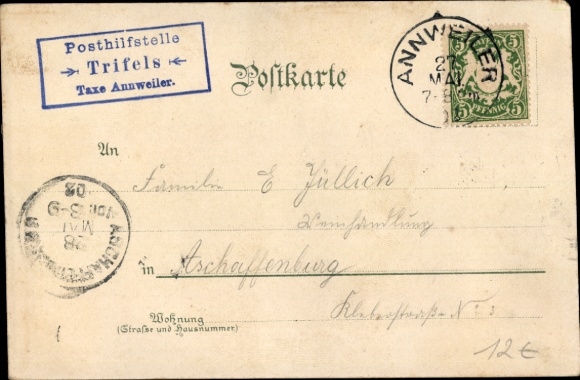 Posthilfstelle
Trifels
Taxe Annweiler.
Postkarte
ANNWEILER
27
MAI
7-8
5 5
5 5
PFENNIG
An
Familie E Jüllich
Weinhandlung
in Aschaffenburg
Kleberstraße No 3
Wohnung
(Straße und Hausnummer)
ASCHAFFENBURG
28
MAI
8-9
02
12 €